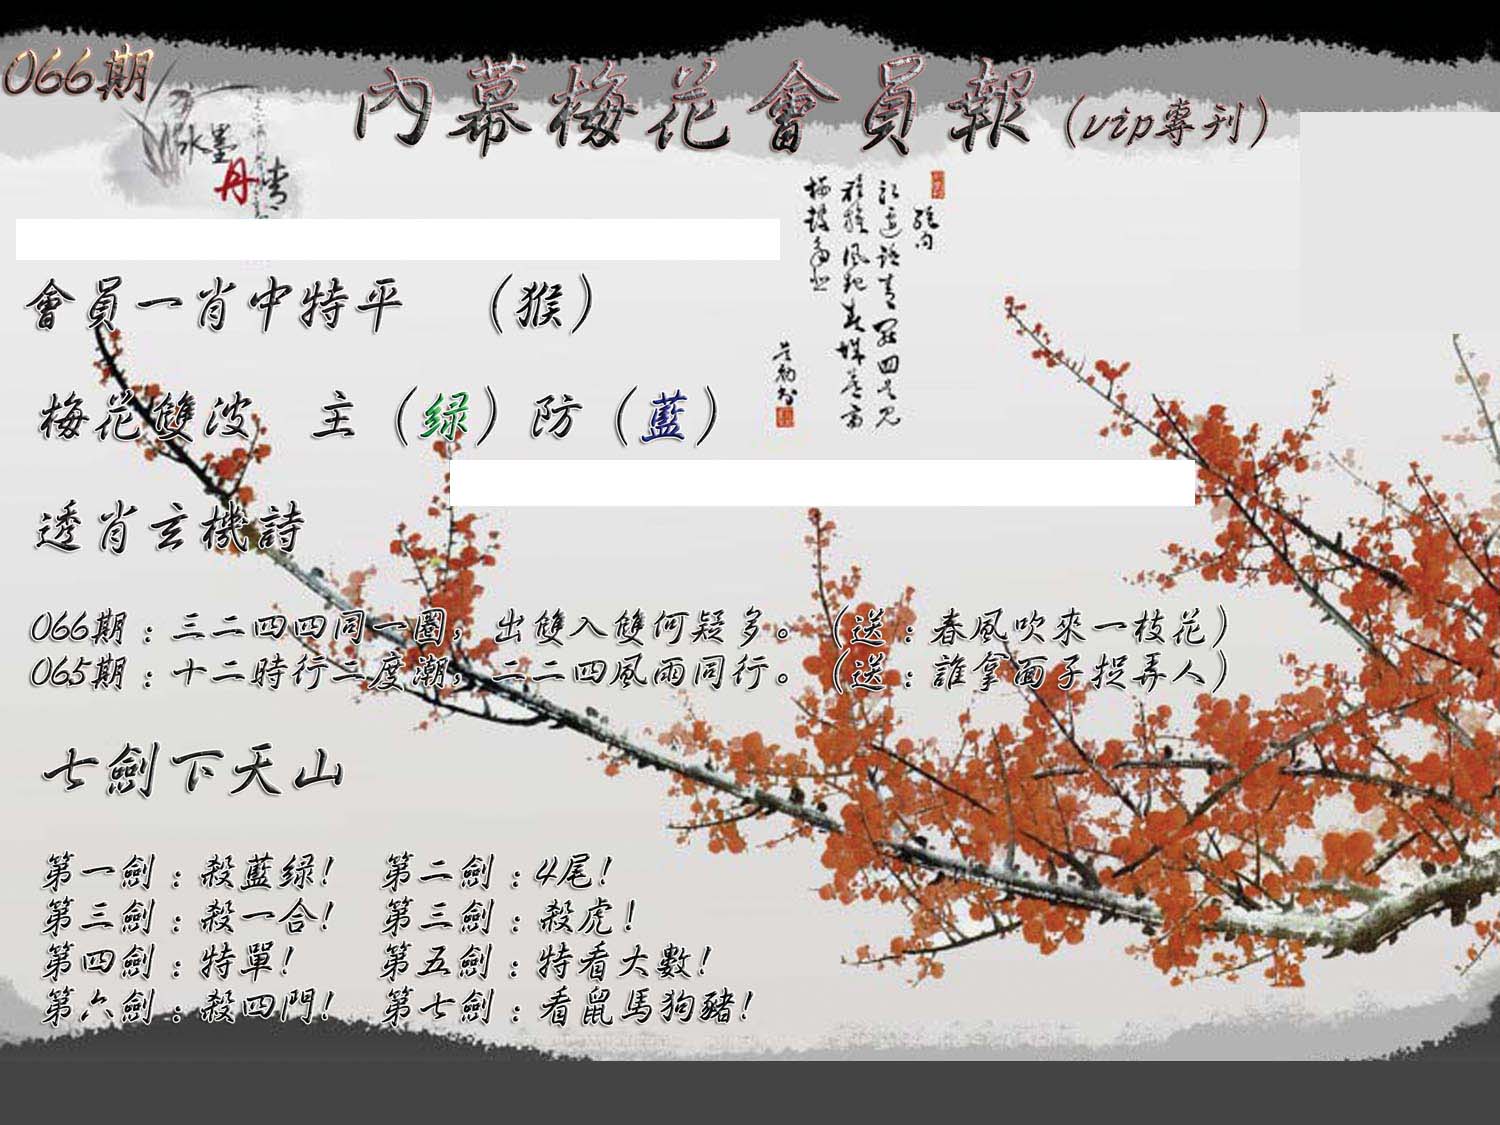 066期
內幕梅花會員報(vip專刊)
水墨
丹青
會員一肖中特平 (猴)
梅花雙波 主(绿)防(藍)
透肖玄機詩
066期：三二四四同一圈，出雙入雙何疑多。(送：春風吹來一枝花)
065期：十二時行二度潮，二二四風雨同行。(送：誰拿面子捉弄人)
七劍下天山
第一劍：殺藍绿! 第二劍：4尾!
第三劍：殺一合! 第三劍：殺虎!
第四劍：特單! 第五劍：特看大數!
第六劍：殺四門! 第七劍：看鼠馬狗豬!